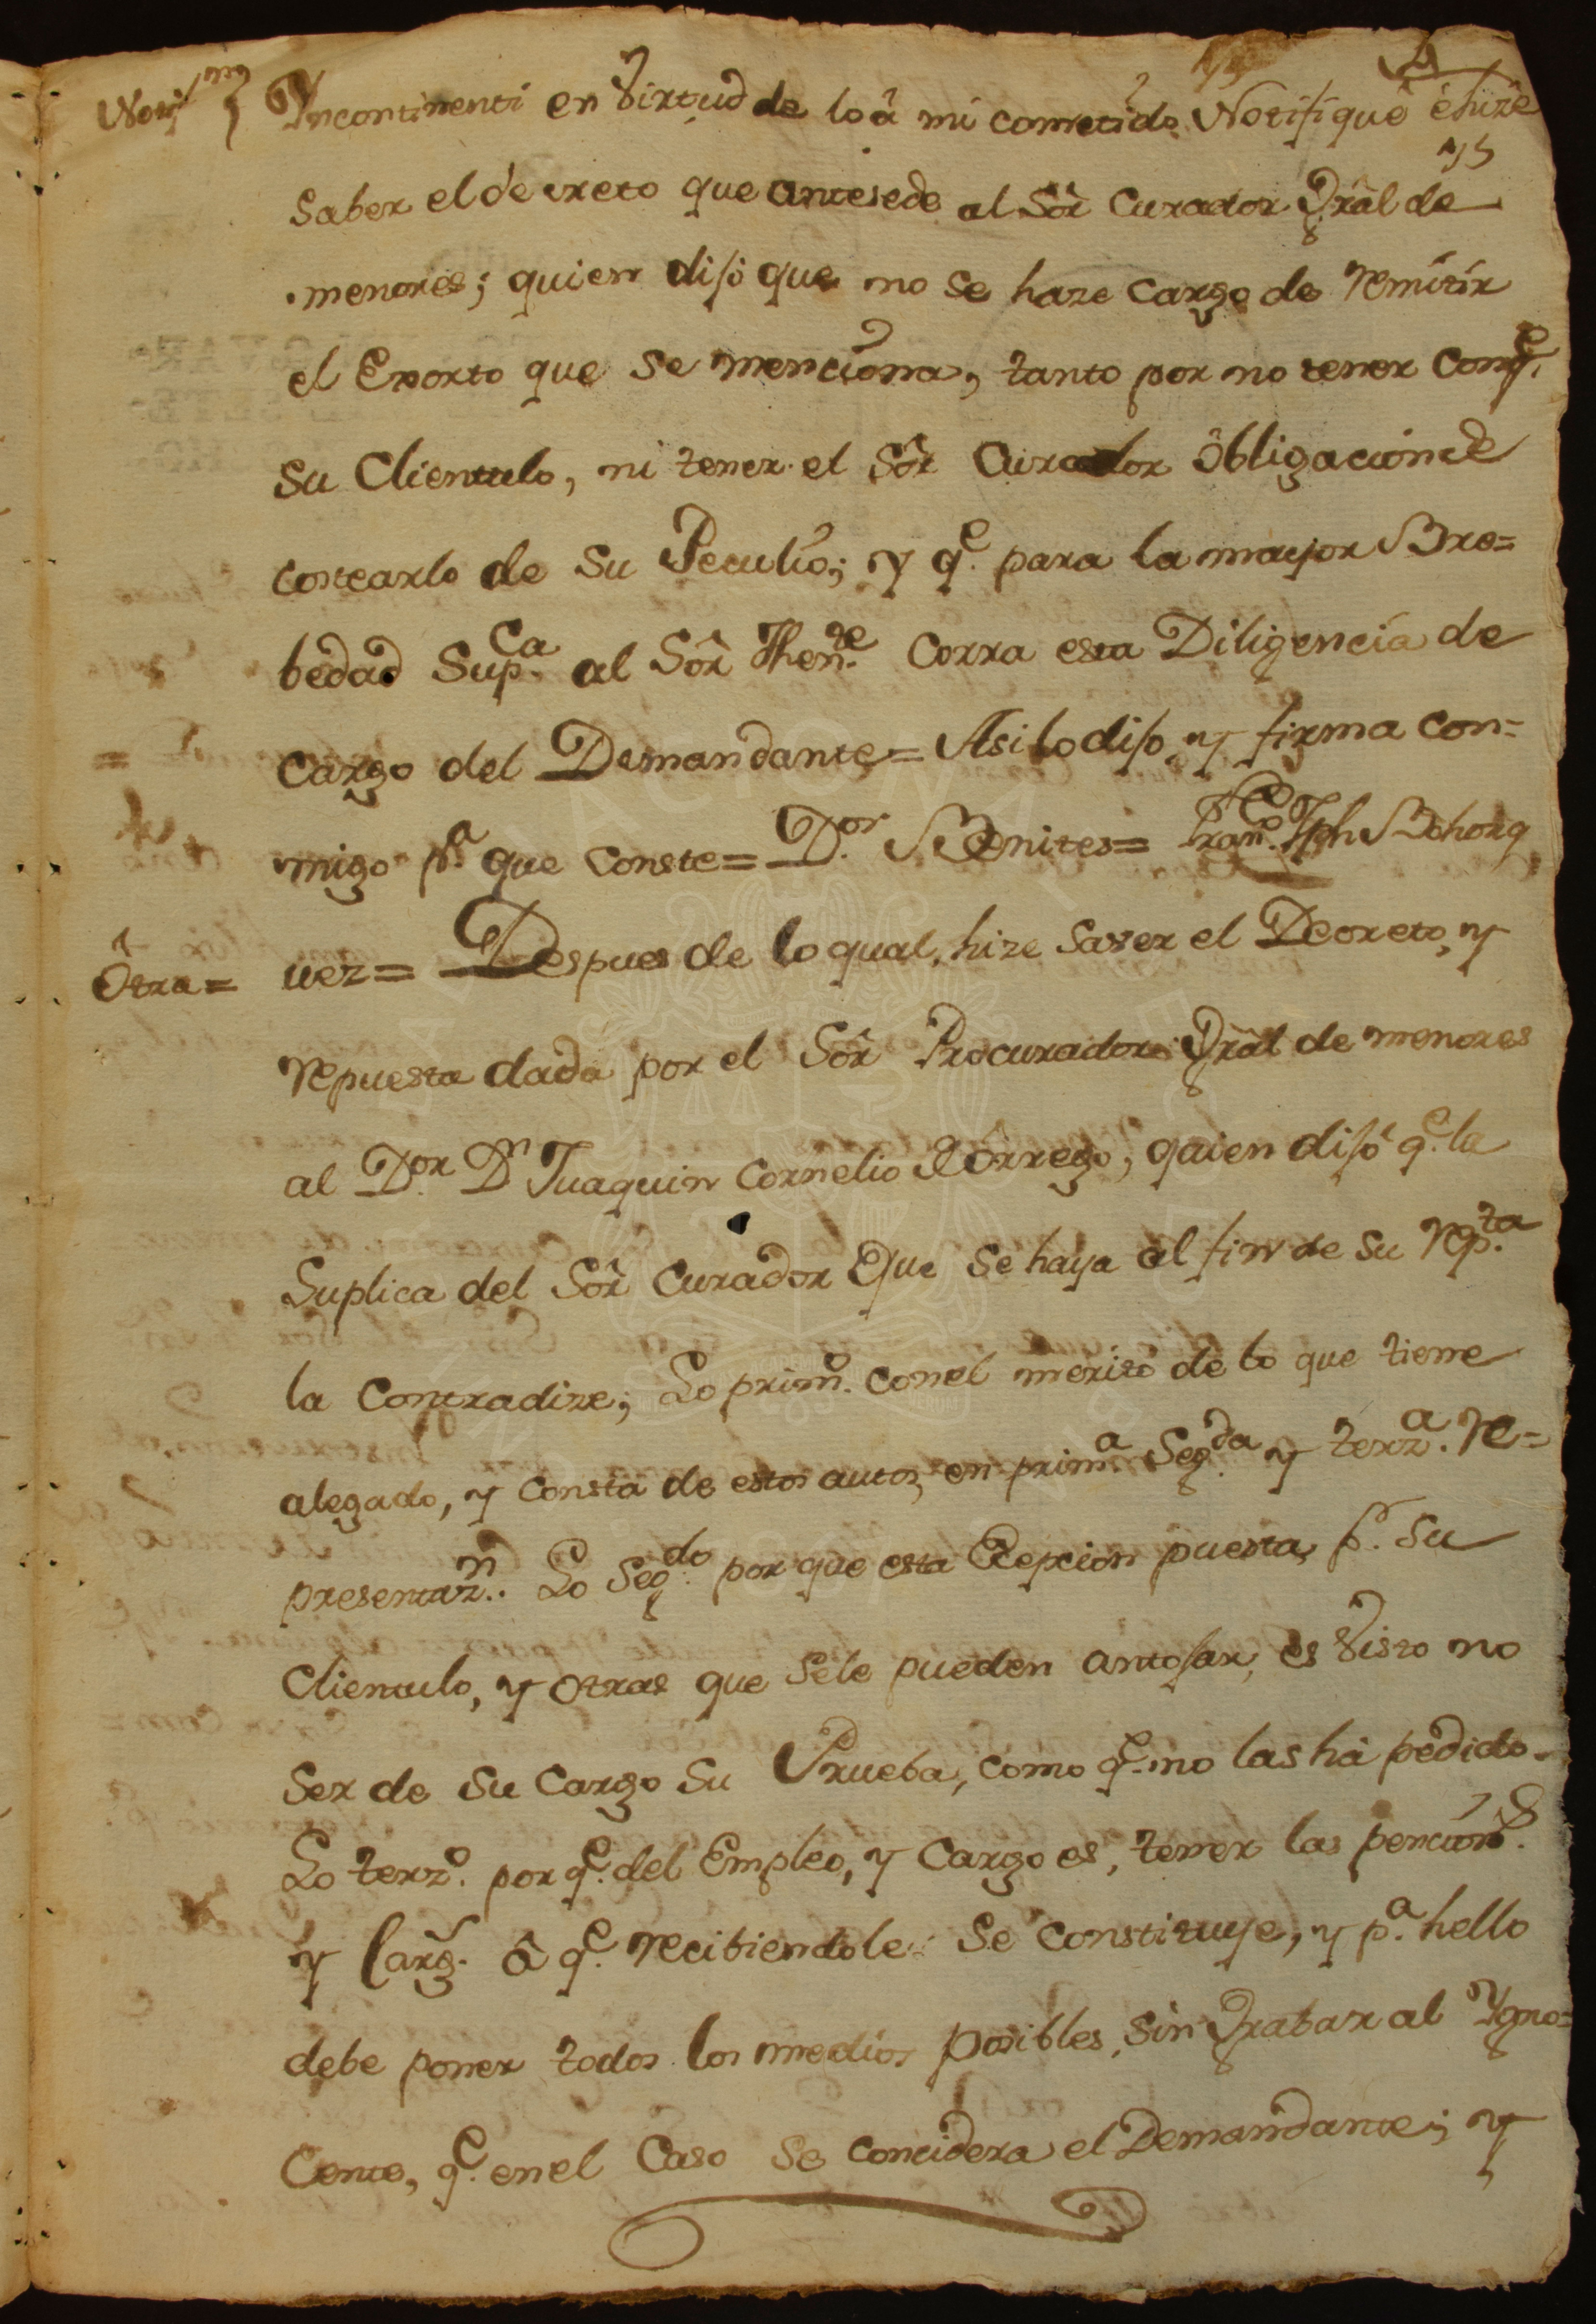 Notif.n Incontinenti en Virtud de lo â mi cometido Notifique è hize
75
saber el decreto que antesede al Sôr Curador Grâl de
menores; quien dijo que no se haze cargo de remitir
el Exorto que se menciona, tanto por no tener con q.e
su Clientulo, ni tener el Sôr Curador Obligacion de
costearlo de su Peculio; y q.e para la mayor Bre=
bedad Sup.ca al Sôr Then.te Corra esta Diligencia de
cargo del Demandante= Asi lo dijo, y firma con=
migo p.a que Conste= D.or Benites= Fran.co Jph Bohorq
Ôtra= uez= Despues de lo qual, hize saver el Decreto, y
repuesta dada por el Sôr Procurador Grâl de menores
al D.or D.n Juaquin Cornelio Borrego, quien dijo q.e la
Suplica del Sôr Curador Que se haya al fin de su rep.ta
la Contradize; Lo prim.o con el merito de lo que tiene
alegado, y Consta de estos autos, en prim.a Seg.da y terz.a re=
presentaz.n. Lo Seg.do por que esta Exepcion puesta p.r su
Clientulo, y Otras que sele pueden antojar, es Visto no
Ser de su Cargo su Prueba, como q.e no las hà pedido.
Lo terz.o por q.e del Empleo, y Cargo es, tener las pencion.s
y Carg.s â q.e recibiendole se Constituye, y p.a hello
debe poner todos los medios posibles, sin Grabar al Ygno=
Cente, q.e en el Caso se Concidera el Demandante; y